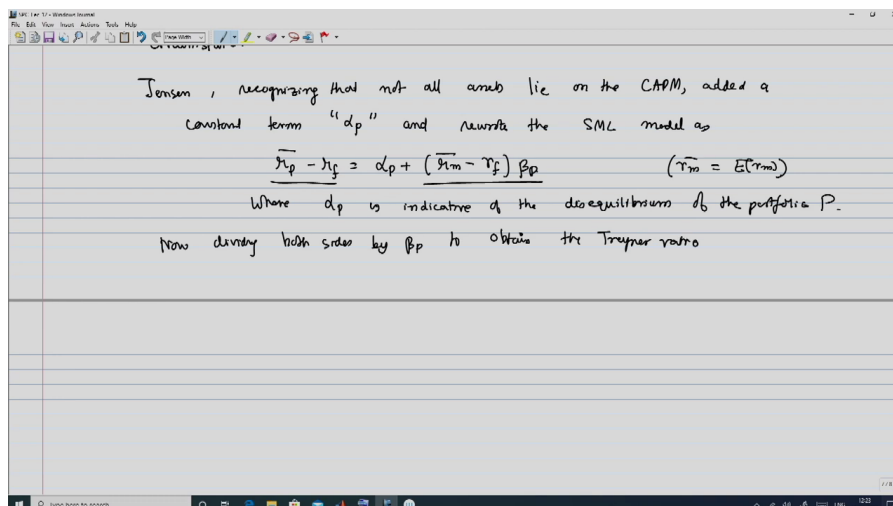 SPC Lec 32 - Windows Journal
File Edit View Insert Actions Tools Help
Page Width
Jensen, recognizing that not all assets lie on the CAPM, added a
constant term "αp" and rewrote the SML model as
r̄p - rf = αp + (r̄m - rf) βp (r̄m = E(rm))
Where αp is indicative of the disequilibrium of the portfolio P.
Now dividing both sides by βp to obtain the Treynor ratio
7/8
Type here to search
ENG 12:23